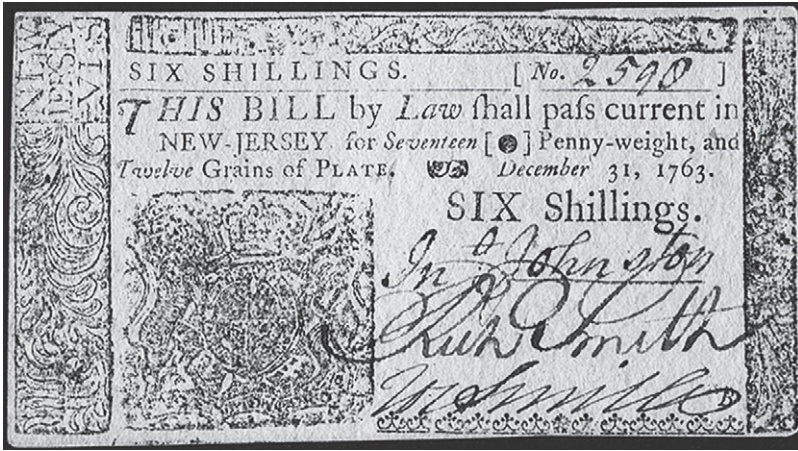 NEW
JERSEY
VI S
SIX SHILLINGS. [ No. 2598 ]
THIS BILL by Law ſhall paſs current in
NEW-JERSEY for Seventeen [ ] Penny-weight, and
Twelve Grains of PLATE. December 31, 1763.
SIX Shillings.
Jnº Johnston
Rich Smith
Wm Smith
B